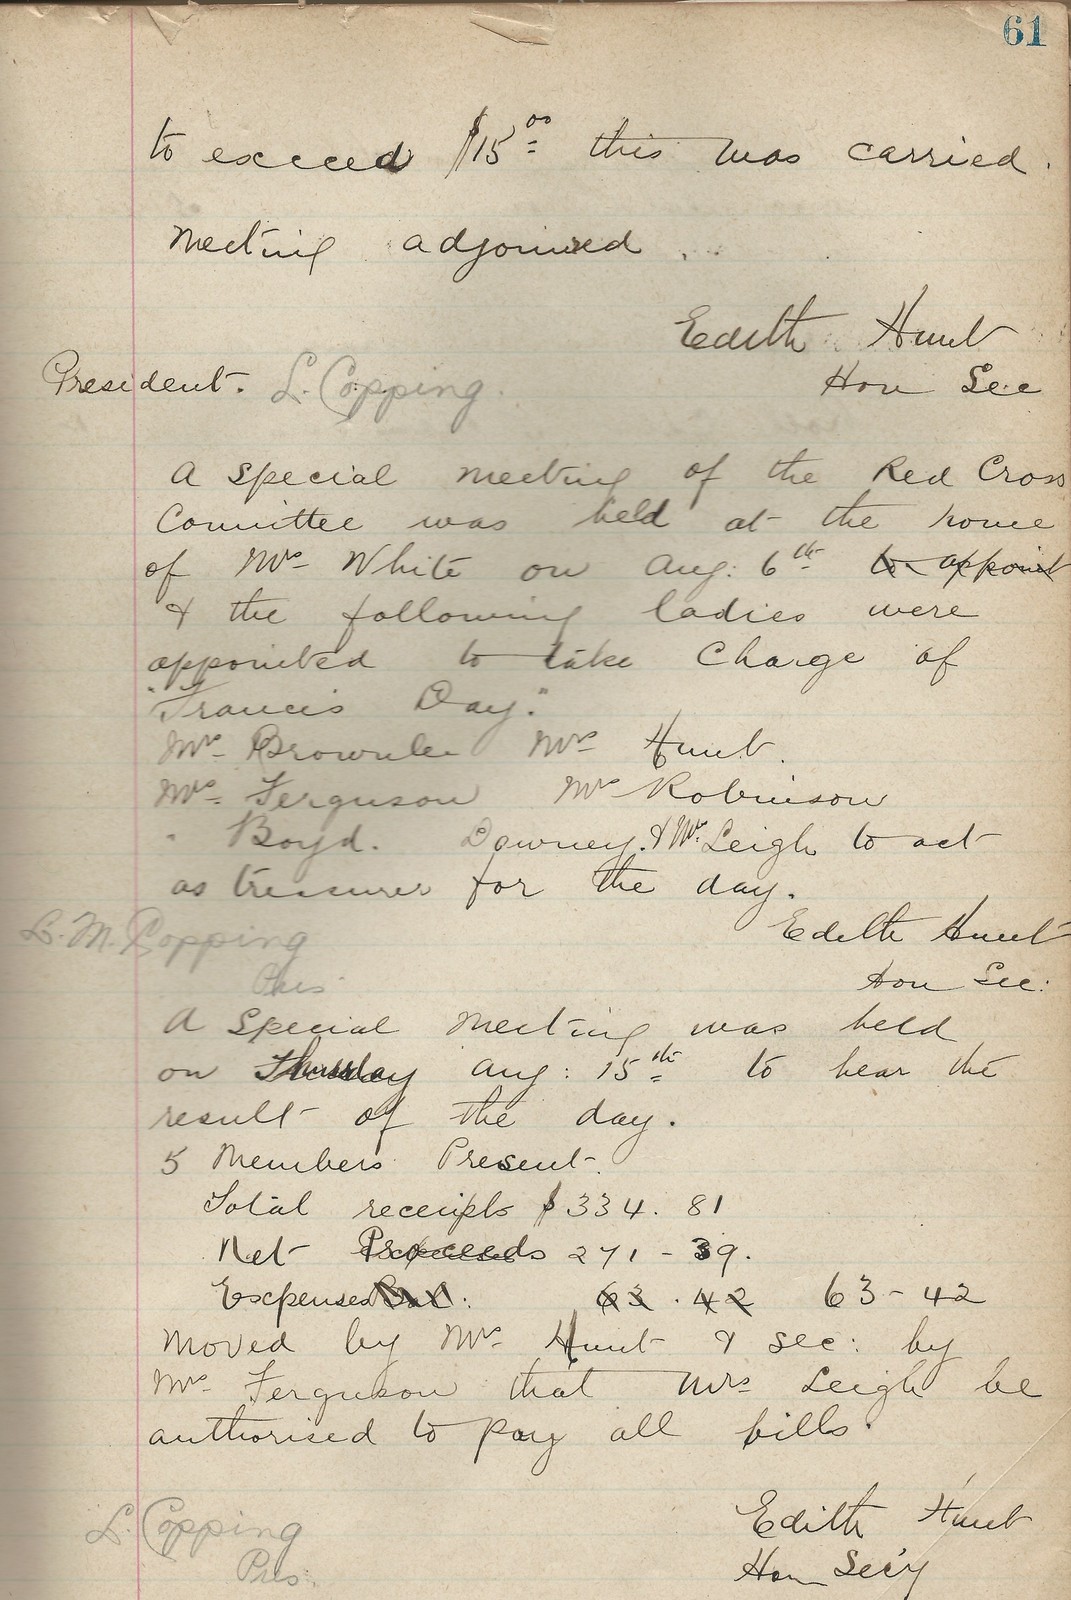 61
to exceed $15.00 this was carried.
Meeting adjourned.
Edith Hunt
President. L. Copping. Hon Sec
A special meeting of the Red Cross
Committee was held at the home
of Mrs White on Aug: 6th to appoint
& the following ladies were
appointed to take charge of
"Francis Day."
Mrs Brownlee Mrs Hunt.
Mrs. Ferguson Mrs Robinson
" Boyd. Downey. & Mrs. Leigh to act
as tresurer for the day.
L. M. Copping Edith Hunt
Pres Hon Sec:
A Special Meeting was held
on Thursday Aug: 15th to hear the
result of the day.
5 Members Present.
Total receipts $334.81
Net Proceeds 271-39.
Expenses Bal: 63.42 63-42
Moved by Mrs Hunt & sec: by
Mrs Ferguson that Mrs Leigh be
authorised to pay all bills.
L. Copping Edith Hunt
Pres. Hon Sec'y